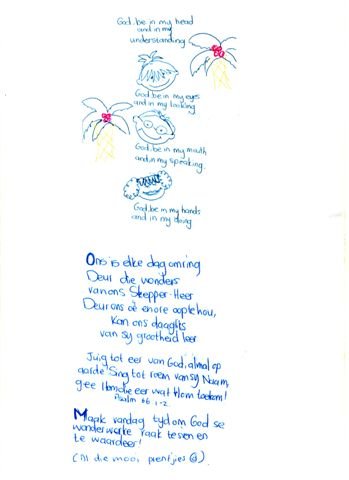 God be in my head
and in my
understanding
God be in my eyes
and in my looking
God be in my mouth
and in my speaking.
God be in my hands
and in my doing
Ons is elke dag omring
Deur die wonders
van ons Skepper-Heer
Deur ons oë en ore oop te hou,
Kan ons daagliks
van sy grootheid leer
Juig tot eer van God, almal op
aarde! Sing tot roem van sy Naam,
gee Hom die eer wat Hom toekom!
Psalm 66 1-2
Maak vandag tyd om God se
wonderwerke raak te sien en
te waardeer!
die mooi prentjies